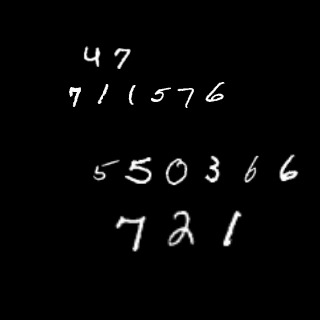 47
711576
550366
721